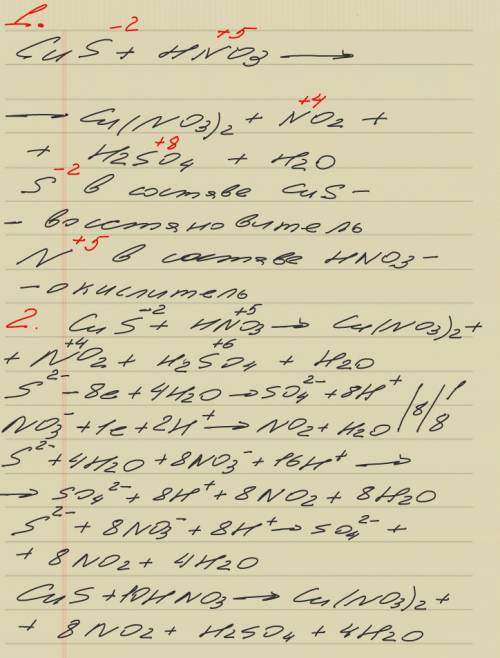 1.
CuS⁻² + HNO₃⁺⁵ ⟶
⟶ Cu(NO₃)₂ + NO₂⁺⁴ +
+ H₂SO₄⁺⁸ + H₂O
S⁻² в составе CuS –
– восстановитель
N⁺⁵ в составе HNO₃ –
– окислитель
2. CuS⁻² + HNO₃⁺⁵ → Cu(NO₃)₂ +
+ NO₂⁺⁴ + H₂SO₄⁺⁶ + H₂O
S²⁻ – 8e + 4H₂O → SO₄²⁻ + 8H⁺ | | 1
NO₃⁻ + 1e + 2H⁺ → NO₂ + H₂O | 8 | 8
S²⁻ + 4H₂O + 8NO₃⁻ + 16H⁺ ⟶
→ SO₄²⁻ + 8H⁺ + 8NO₂ + 8H₂O
S²⁻ + 8NO₃⁻ + 8H⁺ → SO₄²⁻ +
+ 8NO₂ + 4H₂O
CuS + 10HNO₃ → Cu(NO₃)₂ +
+ 8NO₂ + H₂SO₄ + 4H₂O